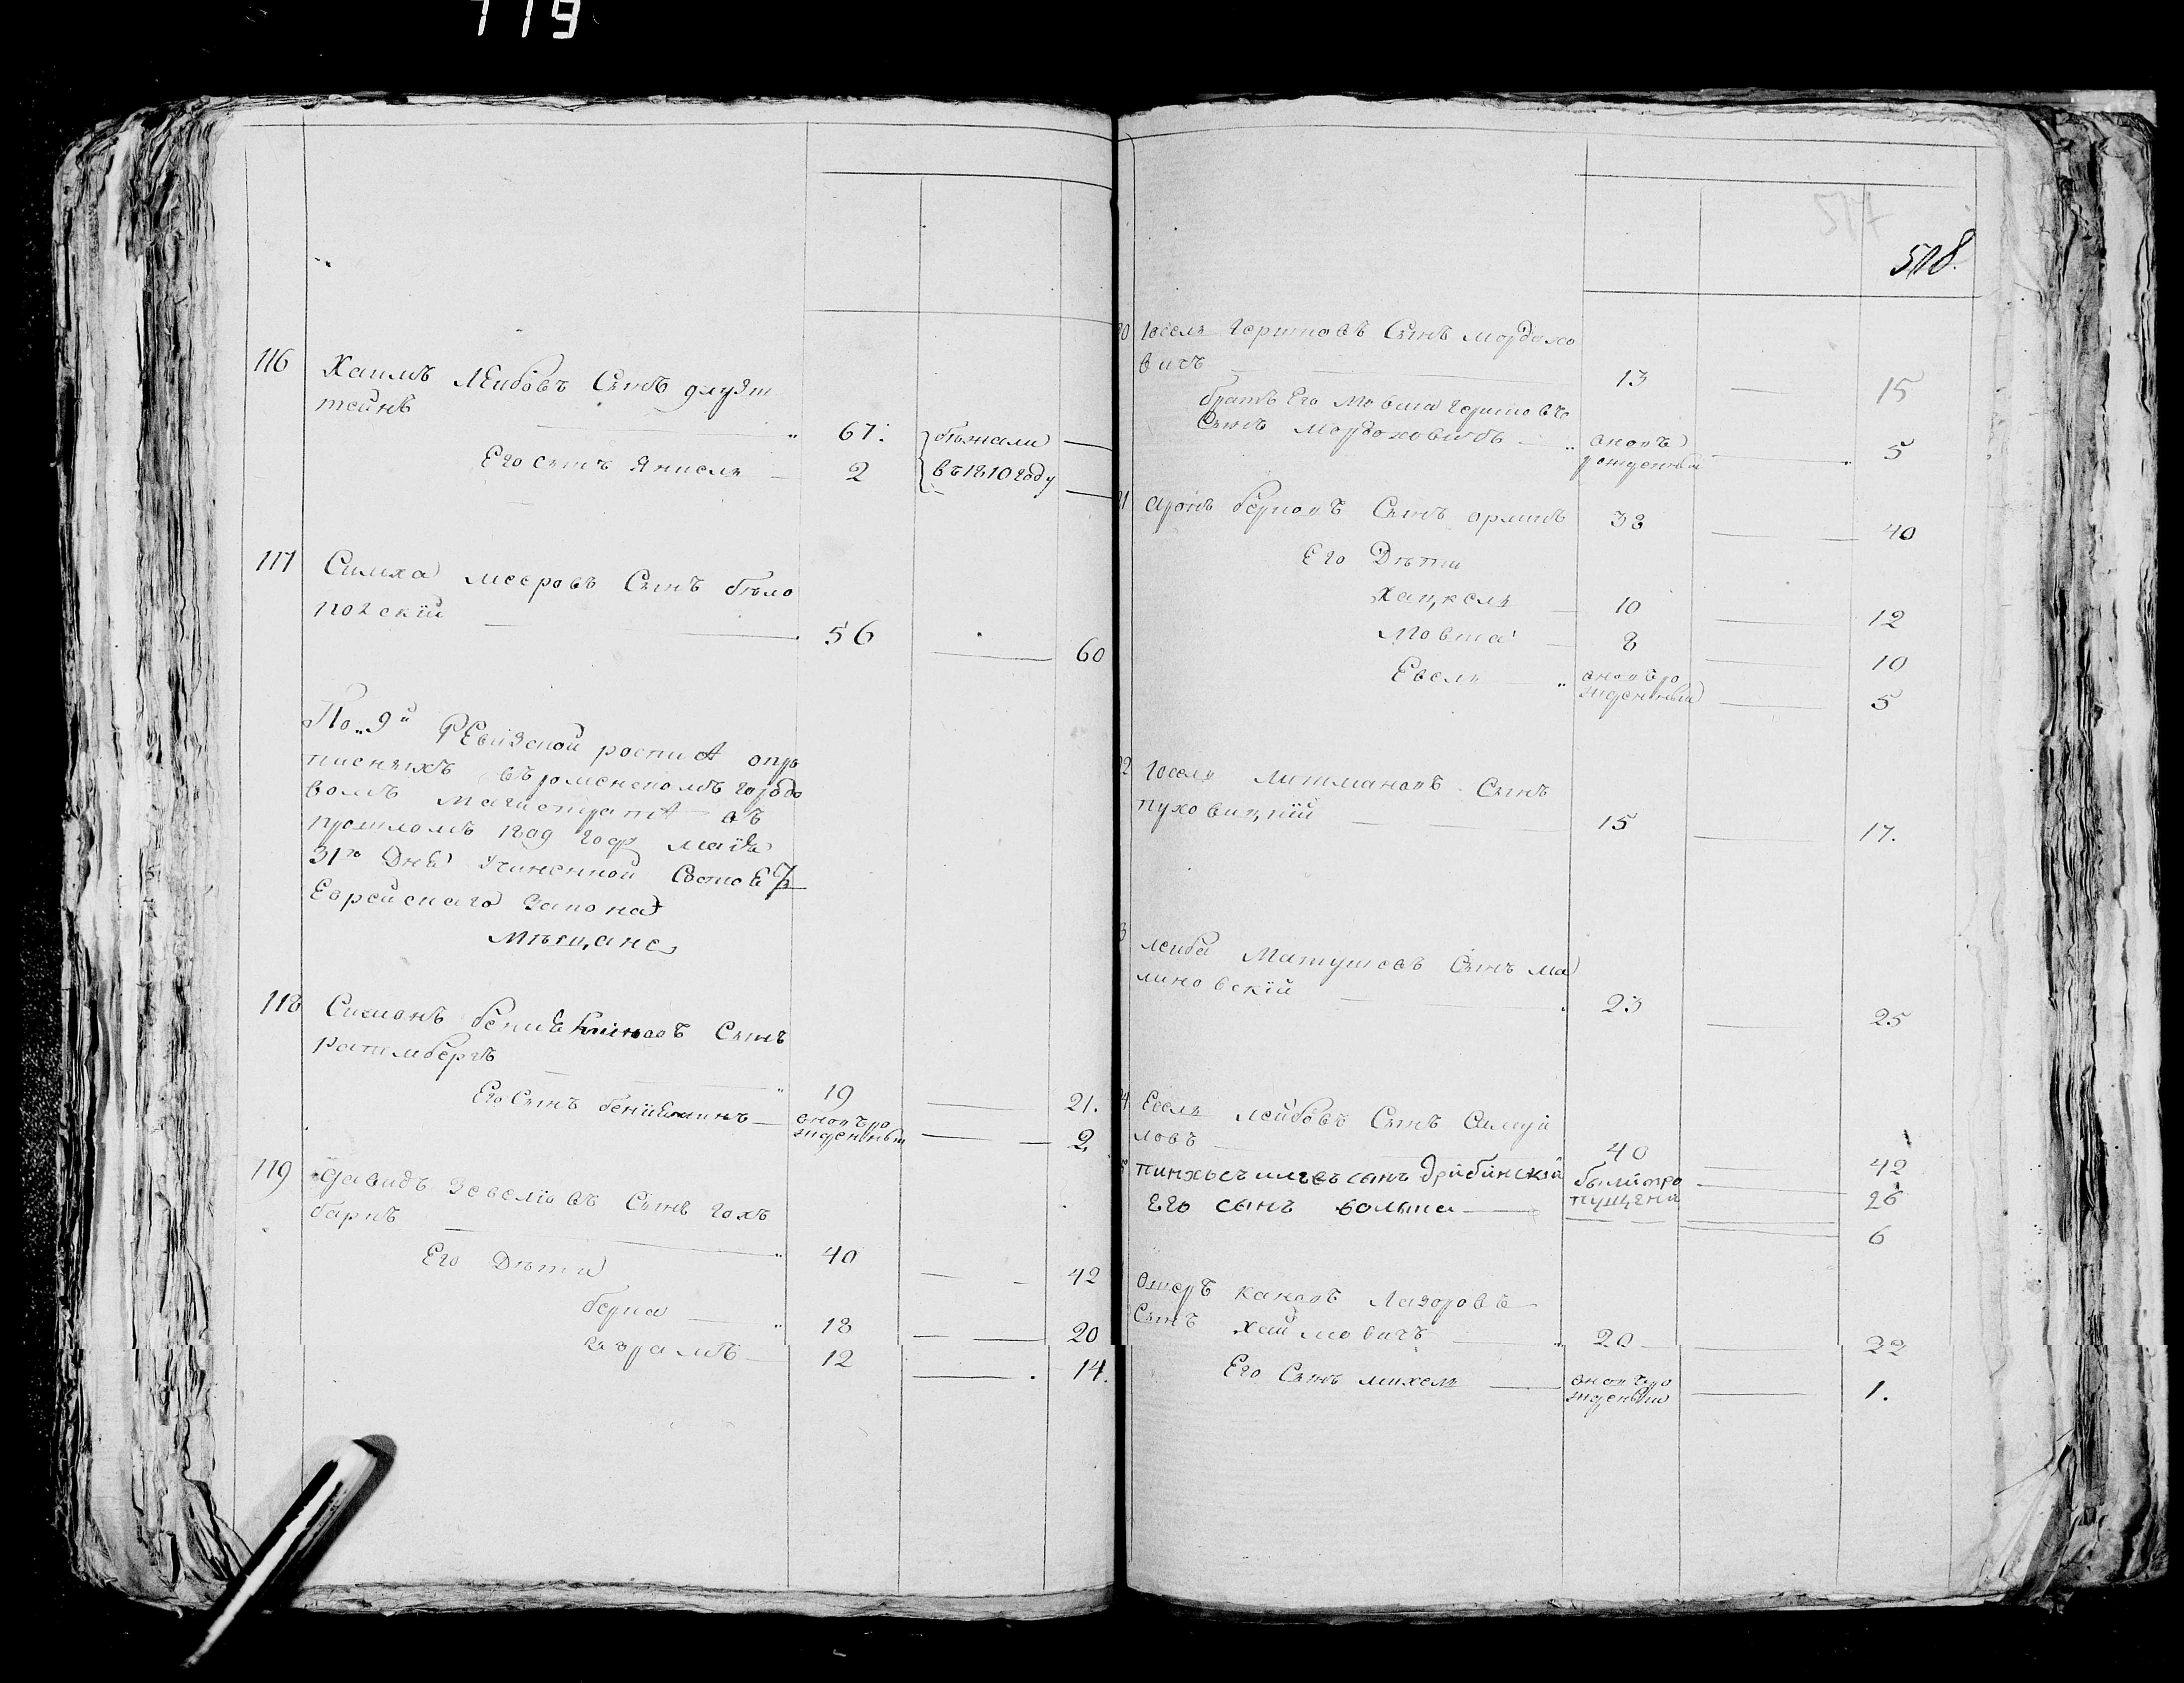 119
116 Хаимъ Леибовъ Сынъ
штеинъ 67. бѣжали
Его сынъ Янкель 2 въ 1810 году
117 Симха Мееровъ Сынъ бѣло
полскiй 56 60
По 9й Ревизской роспис
писныхъ въ роменскомъ городо
вомъ магистратѣ въ
прошломъ 1809 году маiя
31го Дня учиненной Состоя
Еврейскаго закона
мѣщане
118 Симонъ Сынъ
Ратмбергъ 19 21.
Его Сынъ бенiяминъ вновь ро
жденный 2
119 Давидъ Зевелiовъ Сынъ гохъ
барнъ 40 42
Его Дѣти
берка 18 20
Израиль 12 14.
517
518.
20 Iосель Гершовъ Сынъ мордохо
вичъ 13 15
братъ Его Мовша Гершовъ
Сынъ Мордоховичъ вновь
рожденный 5
21 Аронъ берковъ Сынъ орлинъ 38 40
Его Дѣти
Хацкель 10 12
Мовша 8 10
Евель вновь ро
жденный 5
22 Iосель Литмановъ Сынъ
пуховицкiй 15 17.
3 Леиба Матушовъ Сынъ ма
линовскiй 23 25
24 Есель Лейбовъ Сынъ Самуй
ловъ 40 42
5 пинхосъ сынъ Дрибинскiй были про 26
Его сынъ волька пущены 6
Ошеръ Лазоровъ
Сынъ Хаймовичъ 20 22
Его Сынъ михель вновь ро
жденный 1.